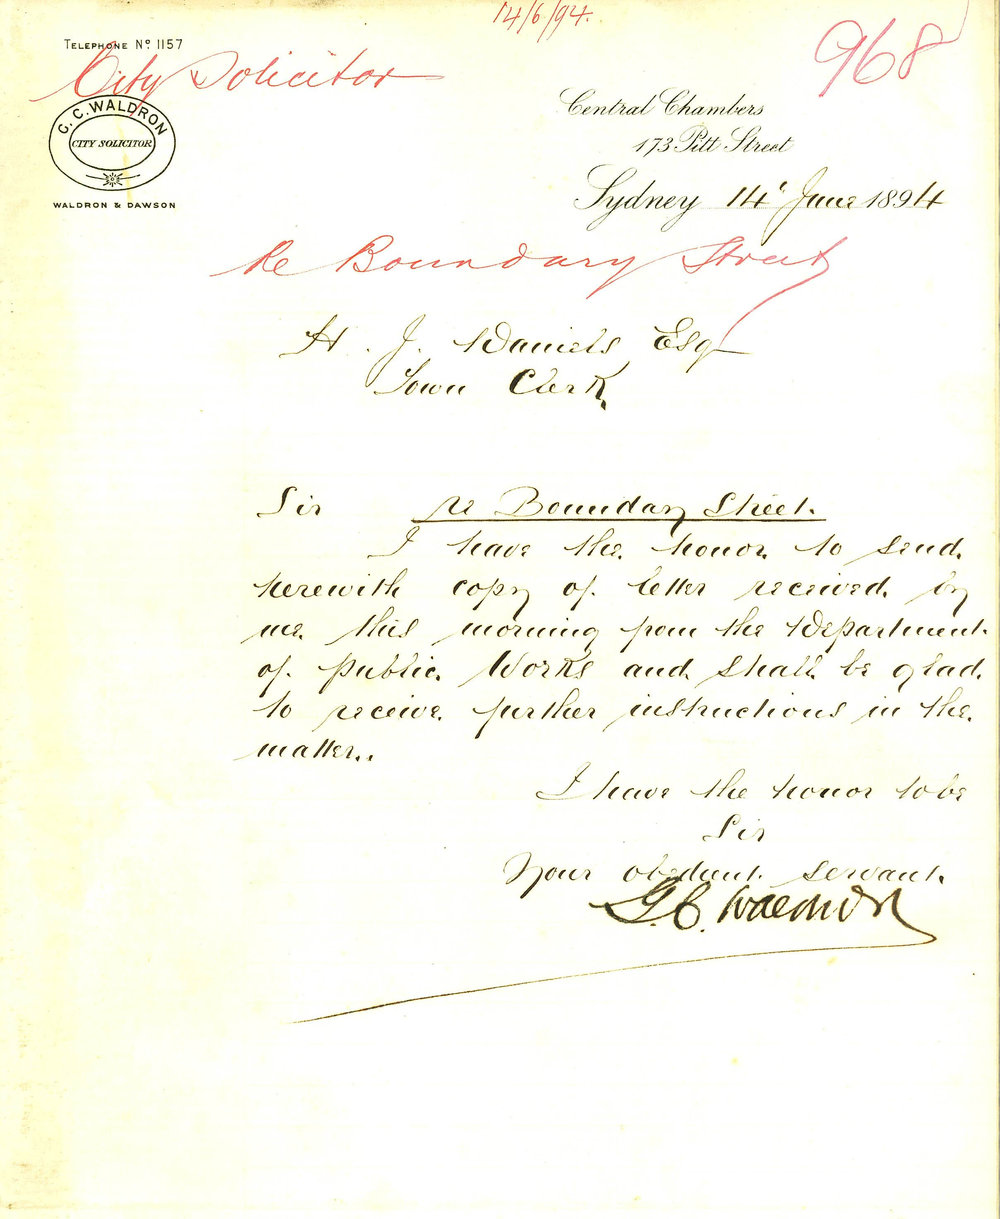 14/6/94.
968
TELEPHONE No 1157
City Solicitor
G. C. WALDRON
CITY SOLICITOR
WALDRON & DAWSON
Central Chambers
173 Pitt Street
Sydney 14' June 1894
Re Boundary Street
H. J. Daniels Esq
Town Clerk.
Sir re Boundary Street.
I have the honor to send
herewith copy of letter received by
me this morning from the Department
of Public Works and shall be glad
to receive further instructions in the
matter..
I have the honor to be
Sir
Your obedient servant.
G. C. Waldron